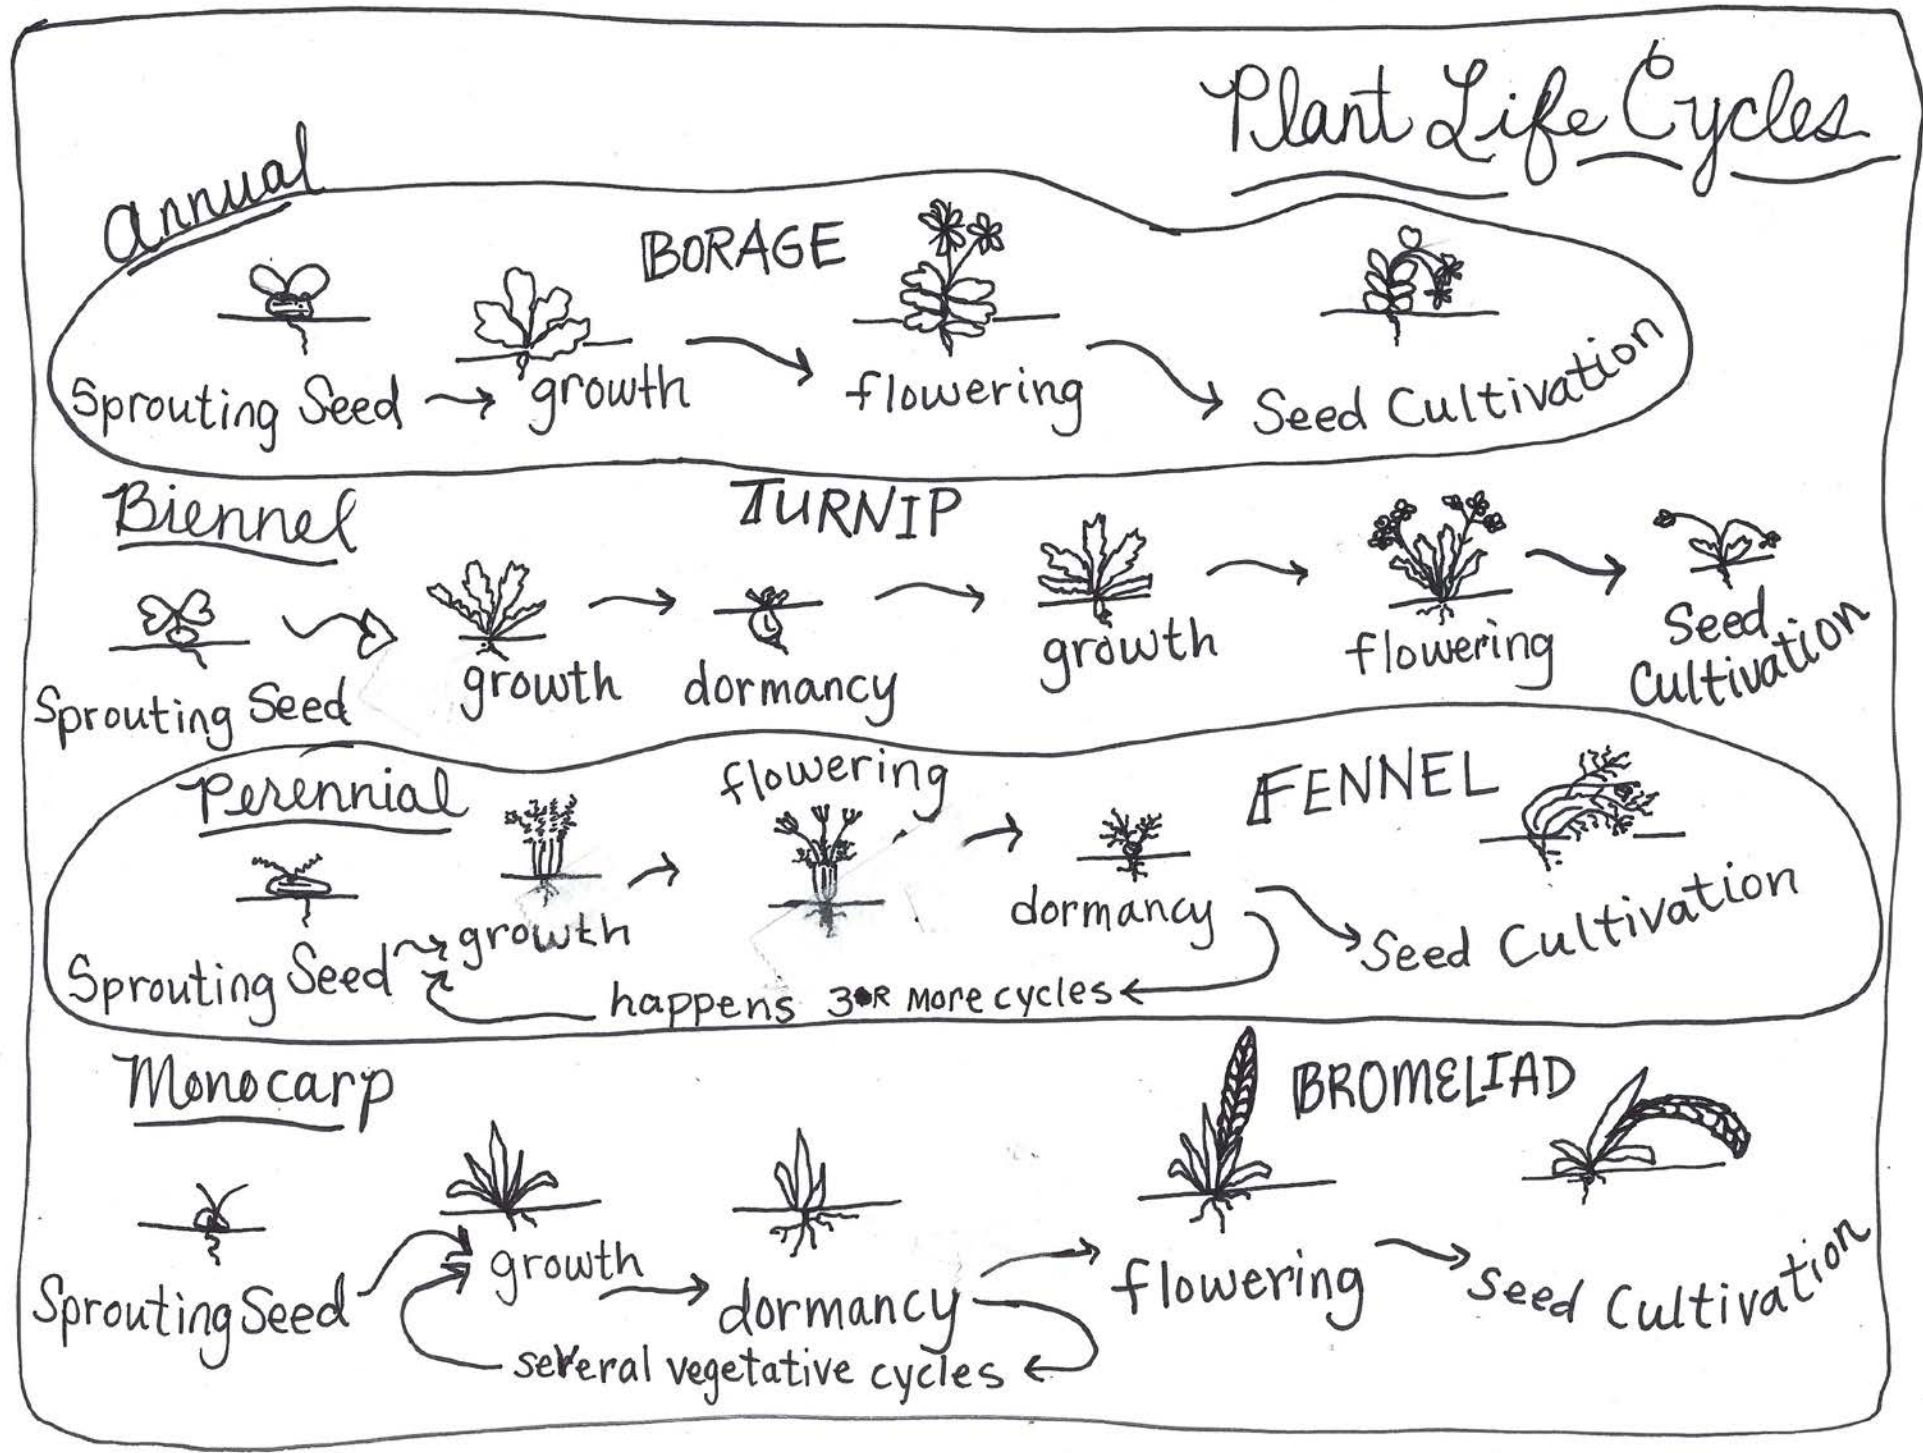 Plant Life Cycles
Annual
BORAGE
Sprouting Seed
growth
flowering
Seed Cultivation
Biennel
TURNIP
Sprouting Seed
growth
dormancy
growth
flowering
Seed
Cultivation
Perennial
FENNEL
Sprouting Seed
growth
flowering
dormancy
Seed Cultivation
happens 3 OR More cycles
Monocarp
BROMELIAD
Sprouting Seed
growth
dormancy
flowering
Seed Cultivation
several vegetative cycles